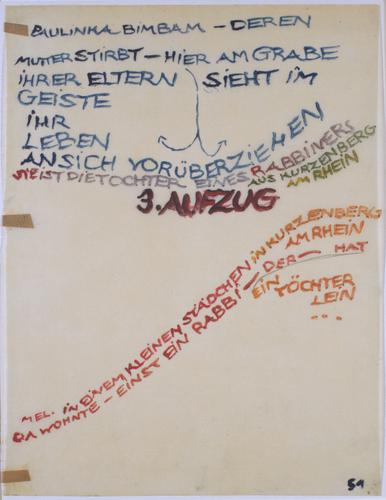 PAULINKA BIMBAM – DEREN
MUTTER STIRBT – HIER AM GRABE
IHRER ELTERN SIEHT IM
GEISTE
IHR
LEBEN
AN SICH VORÜBERZIEHEN
SIE IST DIE TOCHTER EINES RABBINERS
AUS KURZENBERG
AM RHEIN
3. AUFZUG
MEL. IN EINEM KLEINEN STÄDCHEN IN KURZENBERG
AM RHEIN
DA WOHNTE – EINST EIN RABBI – DER – HAT
EIN TÖCHTER
LEIN
...